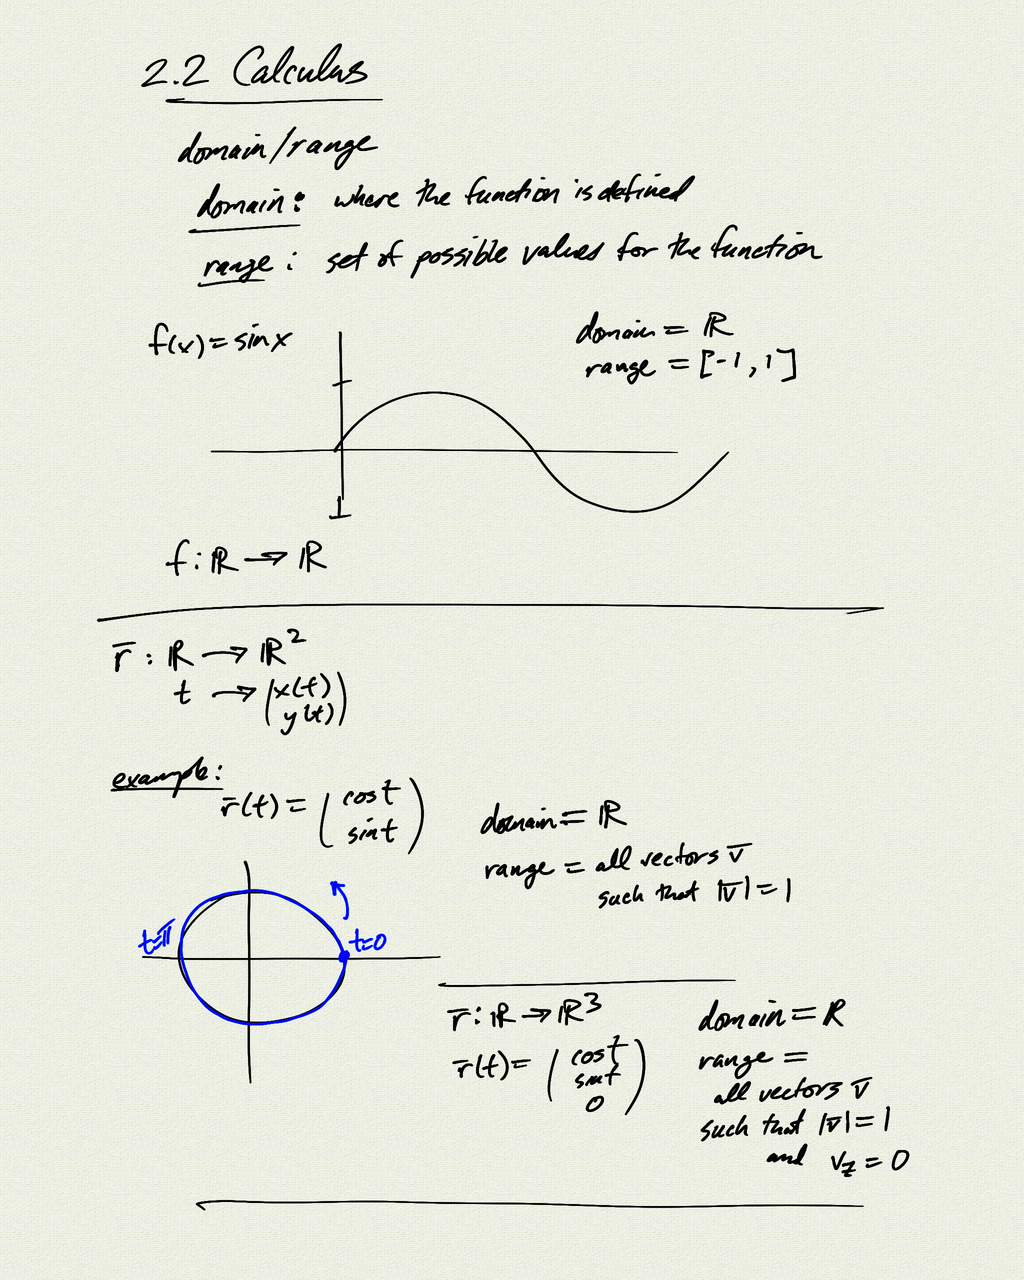 2.2 Calculus
domain/range
domain: where the function is defined
range: set of possible values for the function
f(x) = sin x
domain = ℝ
range = [-1, 1]
f: ℝ → ℝ
r̅: ℝ → ℝ²
t → (x(t)
y(t))
example:
r̅(t) = (cos t
sin t)
domain = ℝ
range = all vectors v̅
such that |v̅| = 1
t=π
t=0
r̅: ℝ → ℝ³
r̅(t) = (cos t
sin t
0)
domain = ℝ
range =
all vectors v̅
such that |v̅| = 1
and v_z = 0